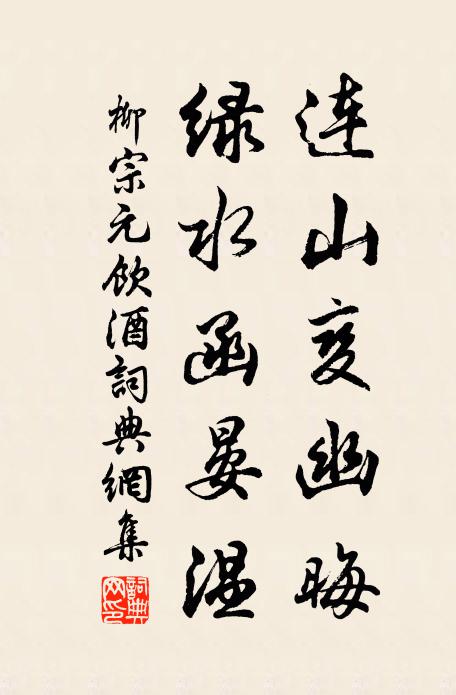 連山變幽晦
綠水函晏溫
柳宗元飲酒詞典網集
詞典網印